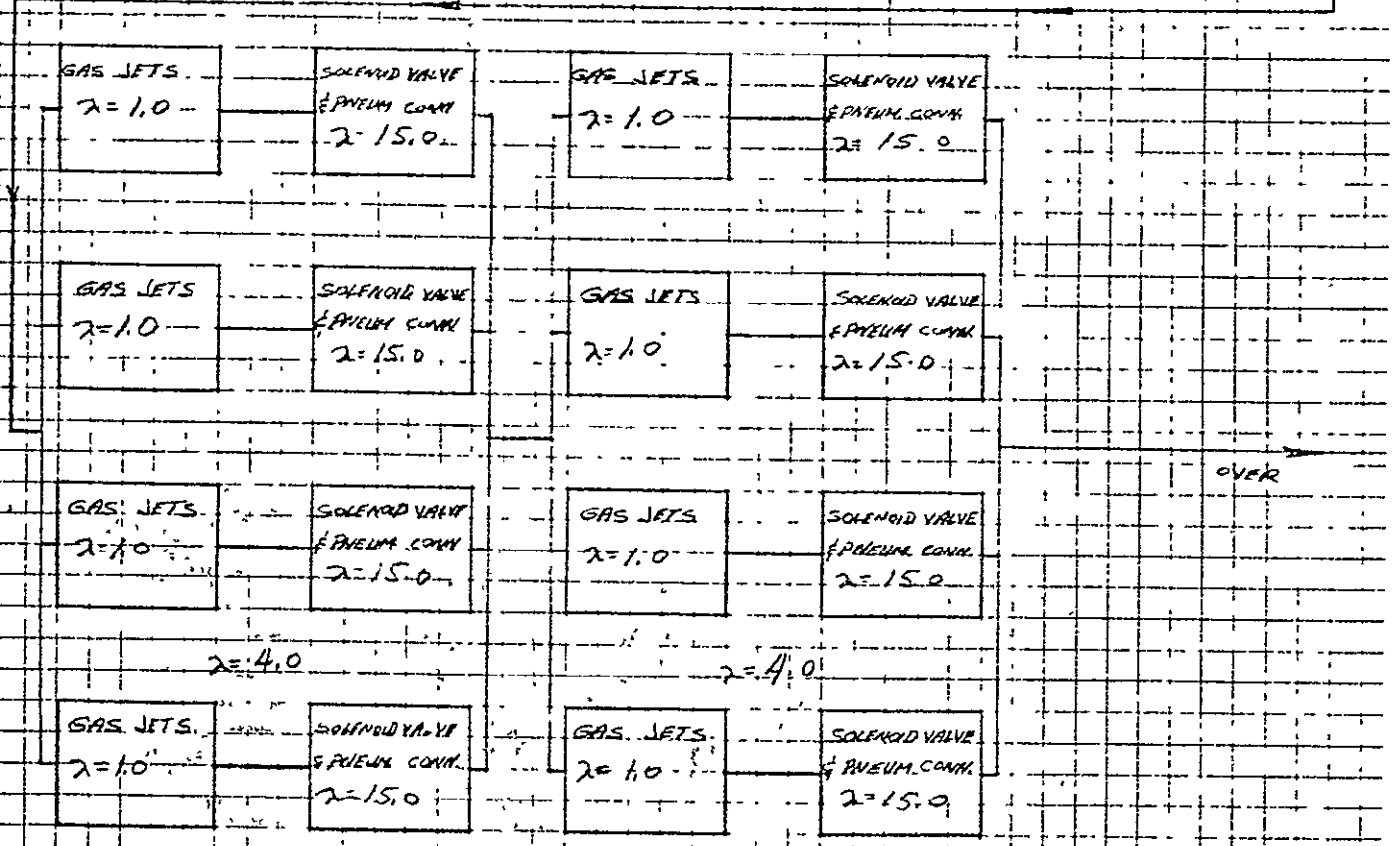 GAS JETS
λ=1.0
SOLENOID VALVE
& PNEUM CONN
λ=15.0
GAS JETS
λ=1.0
SOLENOID VALVE
& PNEUM CONN.
λ=15.0
GAS JETS
λ=1.0
SOLENOID VALVE
& PNEUM CONN
λ=15.0
GAS JETS
λ=1.0
SOLENOID VALVE
& PNEUM CONN.
λ=15.0
OVER
GAS JETS
λ=1.0
SOLENOID VALVE
& PNEUM CONN
λ=15.0
GAS JETS
λ=1.0
SOLENOID VALVE
& PNEUM CONN.
λ=15.0
λ=4.0
λ=4.0
GAS JETS
λ=1.0
SOLENOID VALVE
& PNEUM CONN.
λ=15.0
GAS JETS
λ=1.0
SOLENOID VALVE
& PNEUM. CONN.
λ=15.0